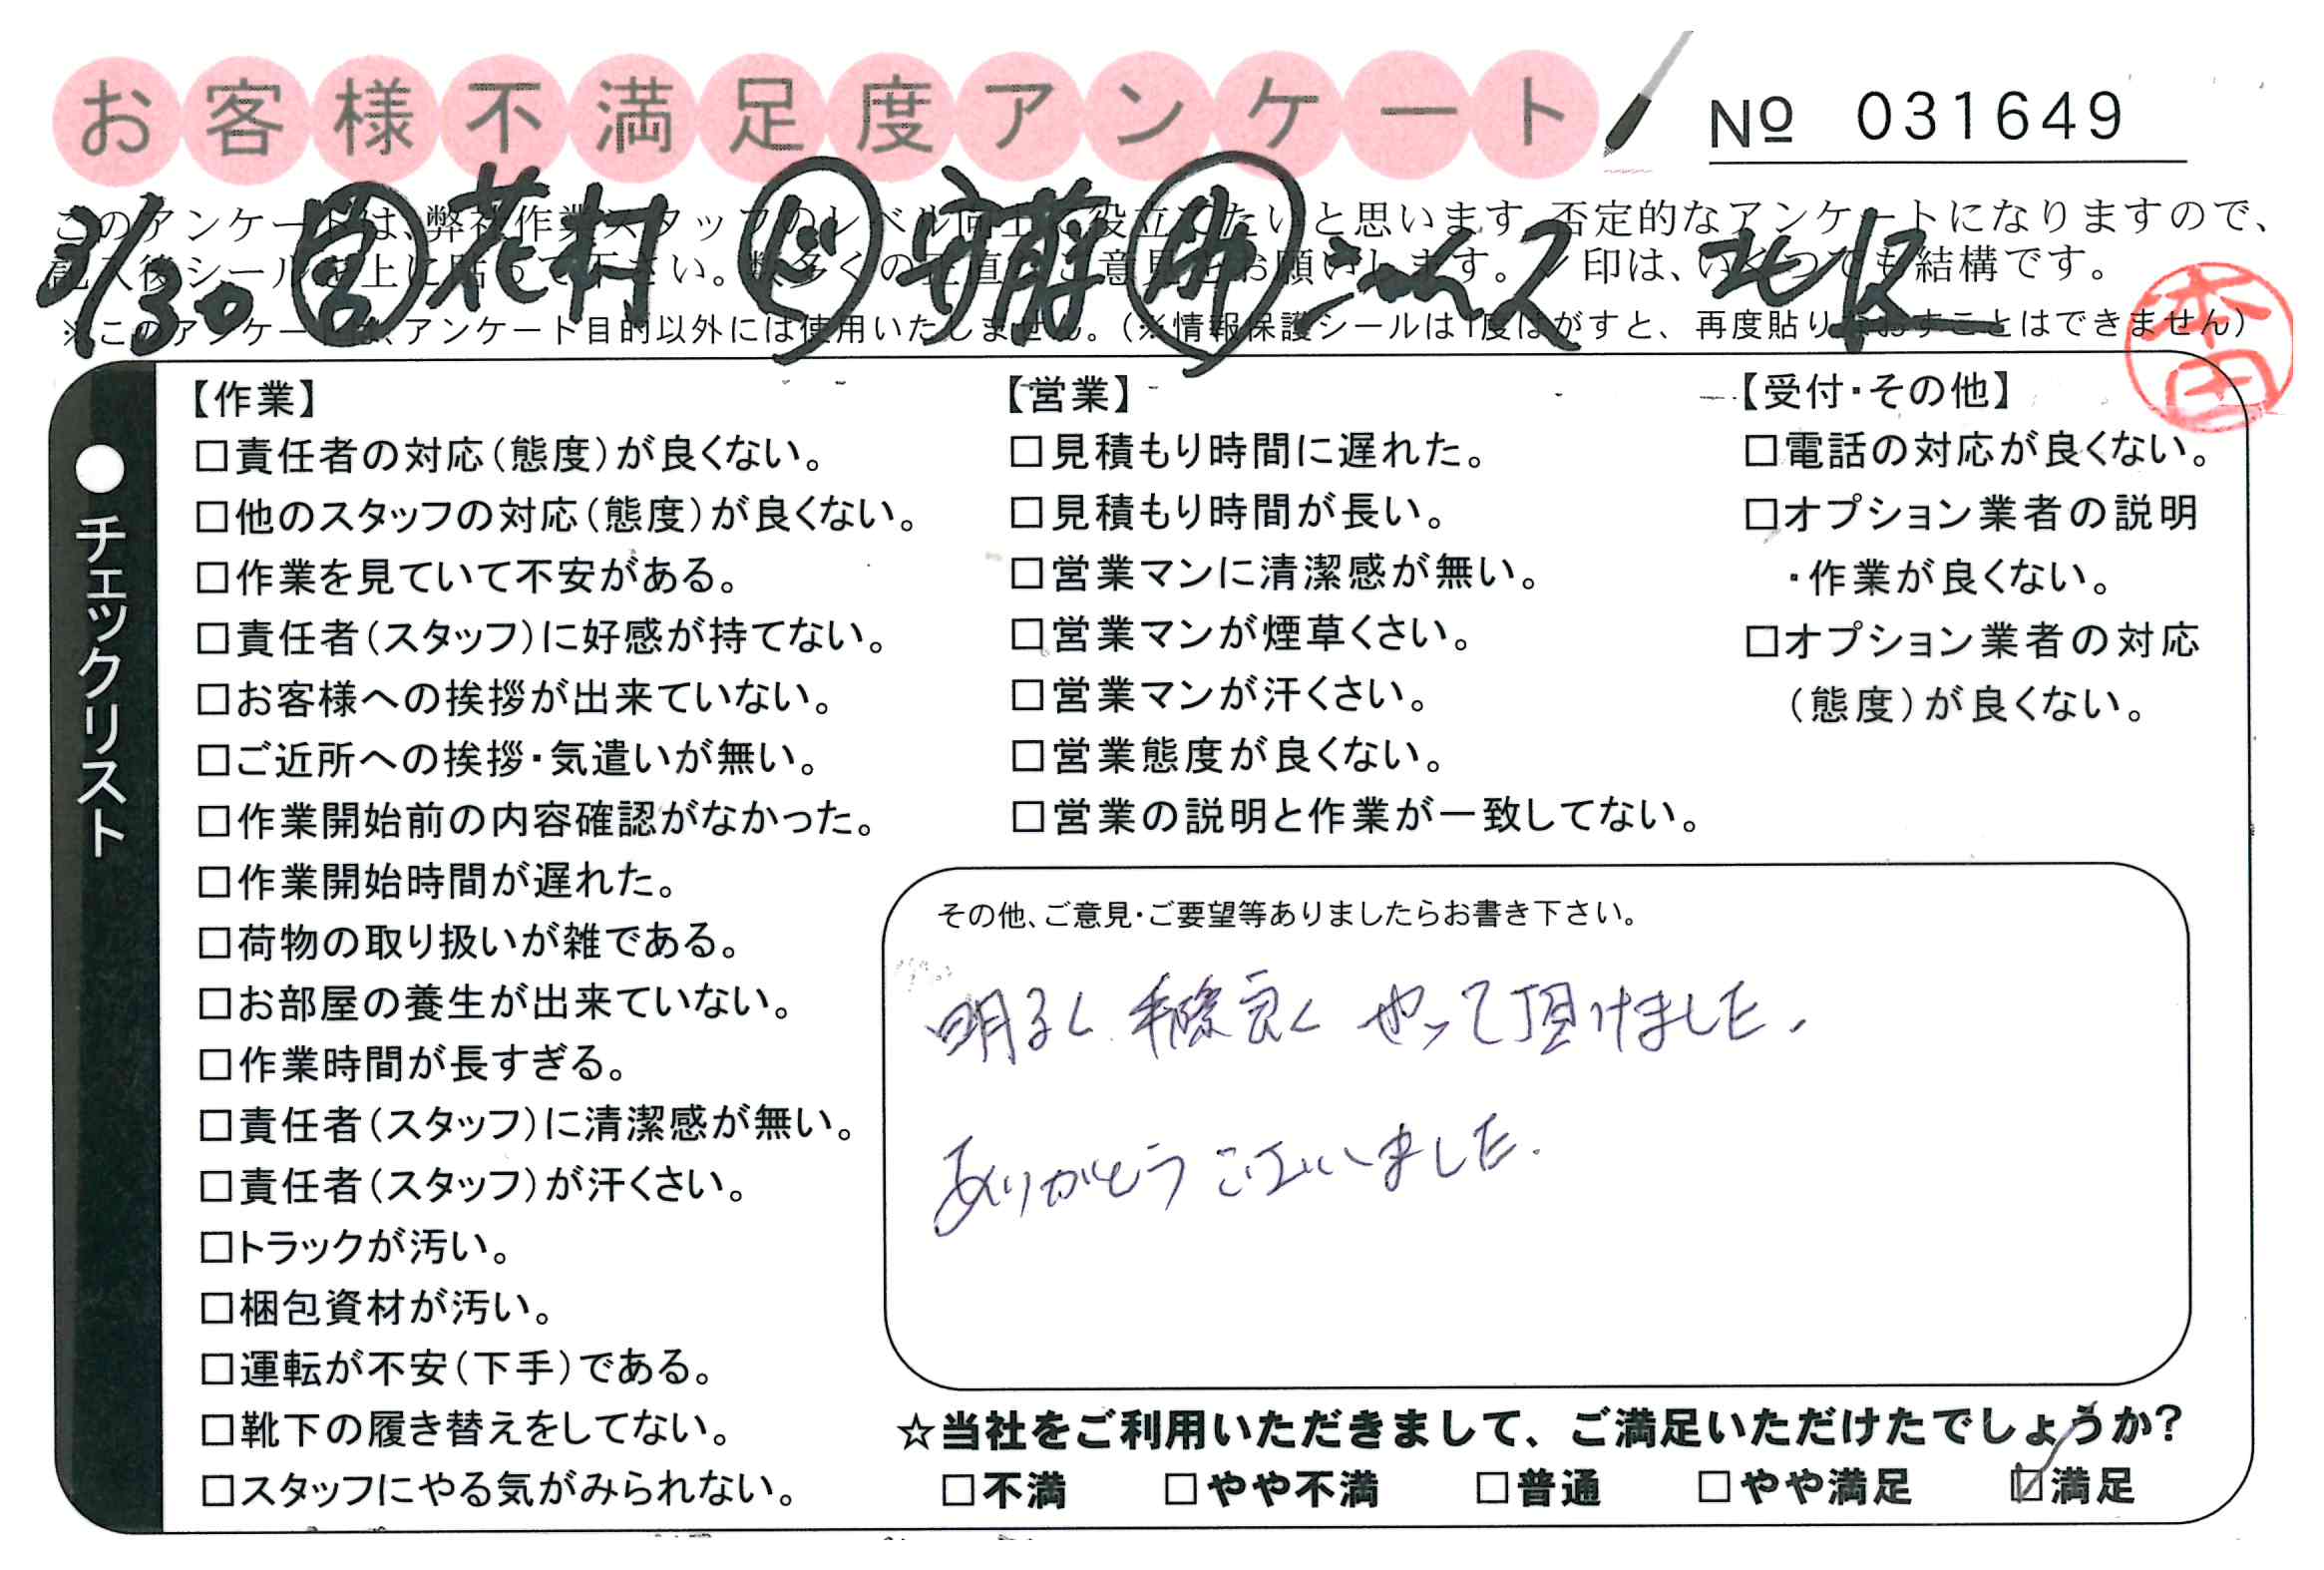 お客様不満足度アンケート
№ 031649
3/30 営 花村 ド 安前 助 北区
このアンケートは、弊社作業スタッフのレベル向上に役立てたいと思います。否定的なアンケートになりますので、
記入後シールを上に貼って下さい。数多くの正直なご意見をお願いします。✓印は、いくつでも結構です。
※このアンケートは、アンケート目的以外には使用いたしません。（※情報保護シールは1度はがすと、再度貼りなおすことはできません）
本田
●チェックリスト
【作業】
□責任者の対応（態度）が良くない。
□他のスタッフの対応（態度）が良くない。
□作業を見ていて不安がある。
□責任者（スタッフ）に好感が持てない。
□お客様への挨拶が出来ていない。
□ご近所への挨拶・気遣いが無い。
□作業開始前の内容確認がなかった。
□作業開始時間が遅れた。
□荷物の取り扱いが雑である。
□お部屋の養生が出来ていない。
□作業時間が長すぎる。
□責任者（スタッフ）に清潔感が無い。
□責任者（スタッフ）が汗くさい。
□トラックが汚い。
□梱包資材が汚い。
□運転が不安（下手）である。
□靴下の履き替えをしてない。
□スタッフにやる気がみられない。
【営業】
□見積もり時間に遅れた。
□見積もり時間が長い。
□営業マンに清潔感が無い。
□営業マンが煙草くさい。
□営業マンが汗くさい。
□営業態度が良くない。
□営業の説明と作業が一致してない。
【受付・その他】
□電話の対応が良くない。
□オプション業者の説明
・作業が良くない。
□オプション業者の対応
（態度）が良くない。
その他、ご意見・ご要望等ありましたらお書き下さい。
明るく手際良くやって頂けました。
ありがとうございました。
☆当社をご利用いただきまして、ご満足いただけたでしょうか？
□不満 □やや不満 □普通 □やや満足 ☑満足